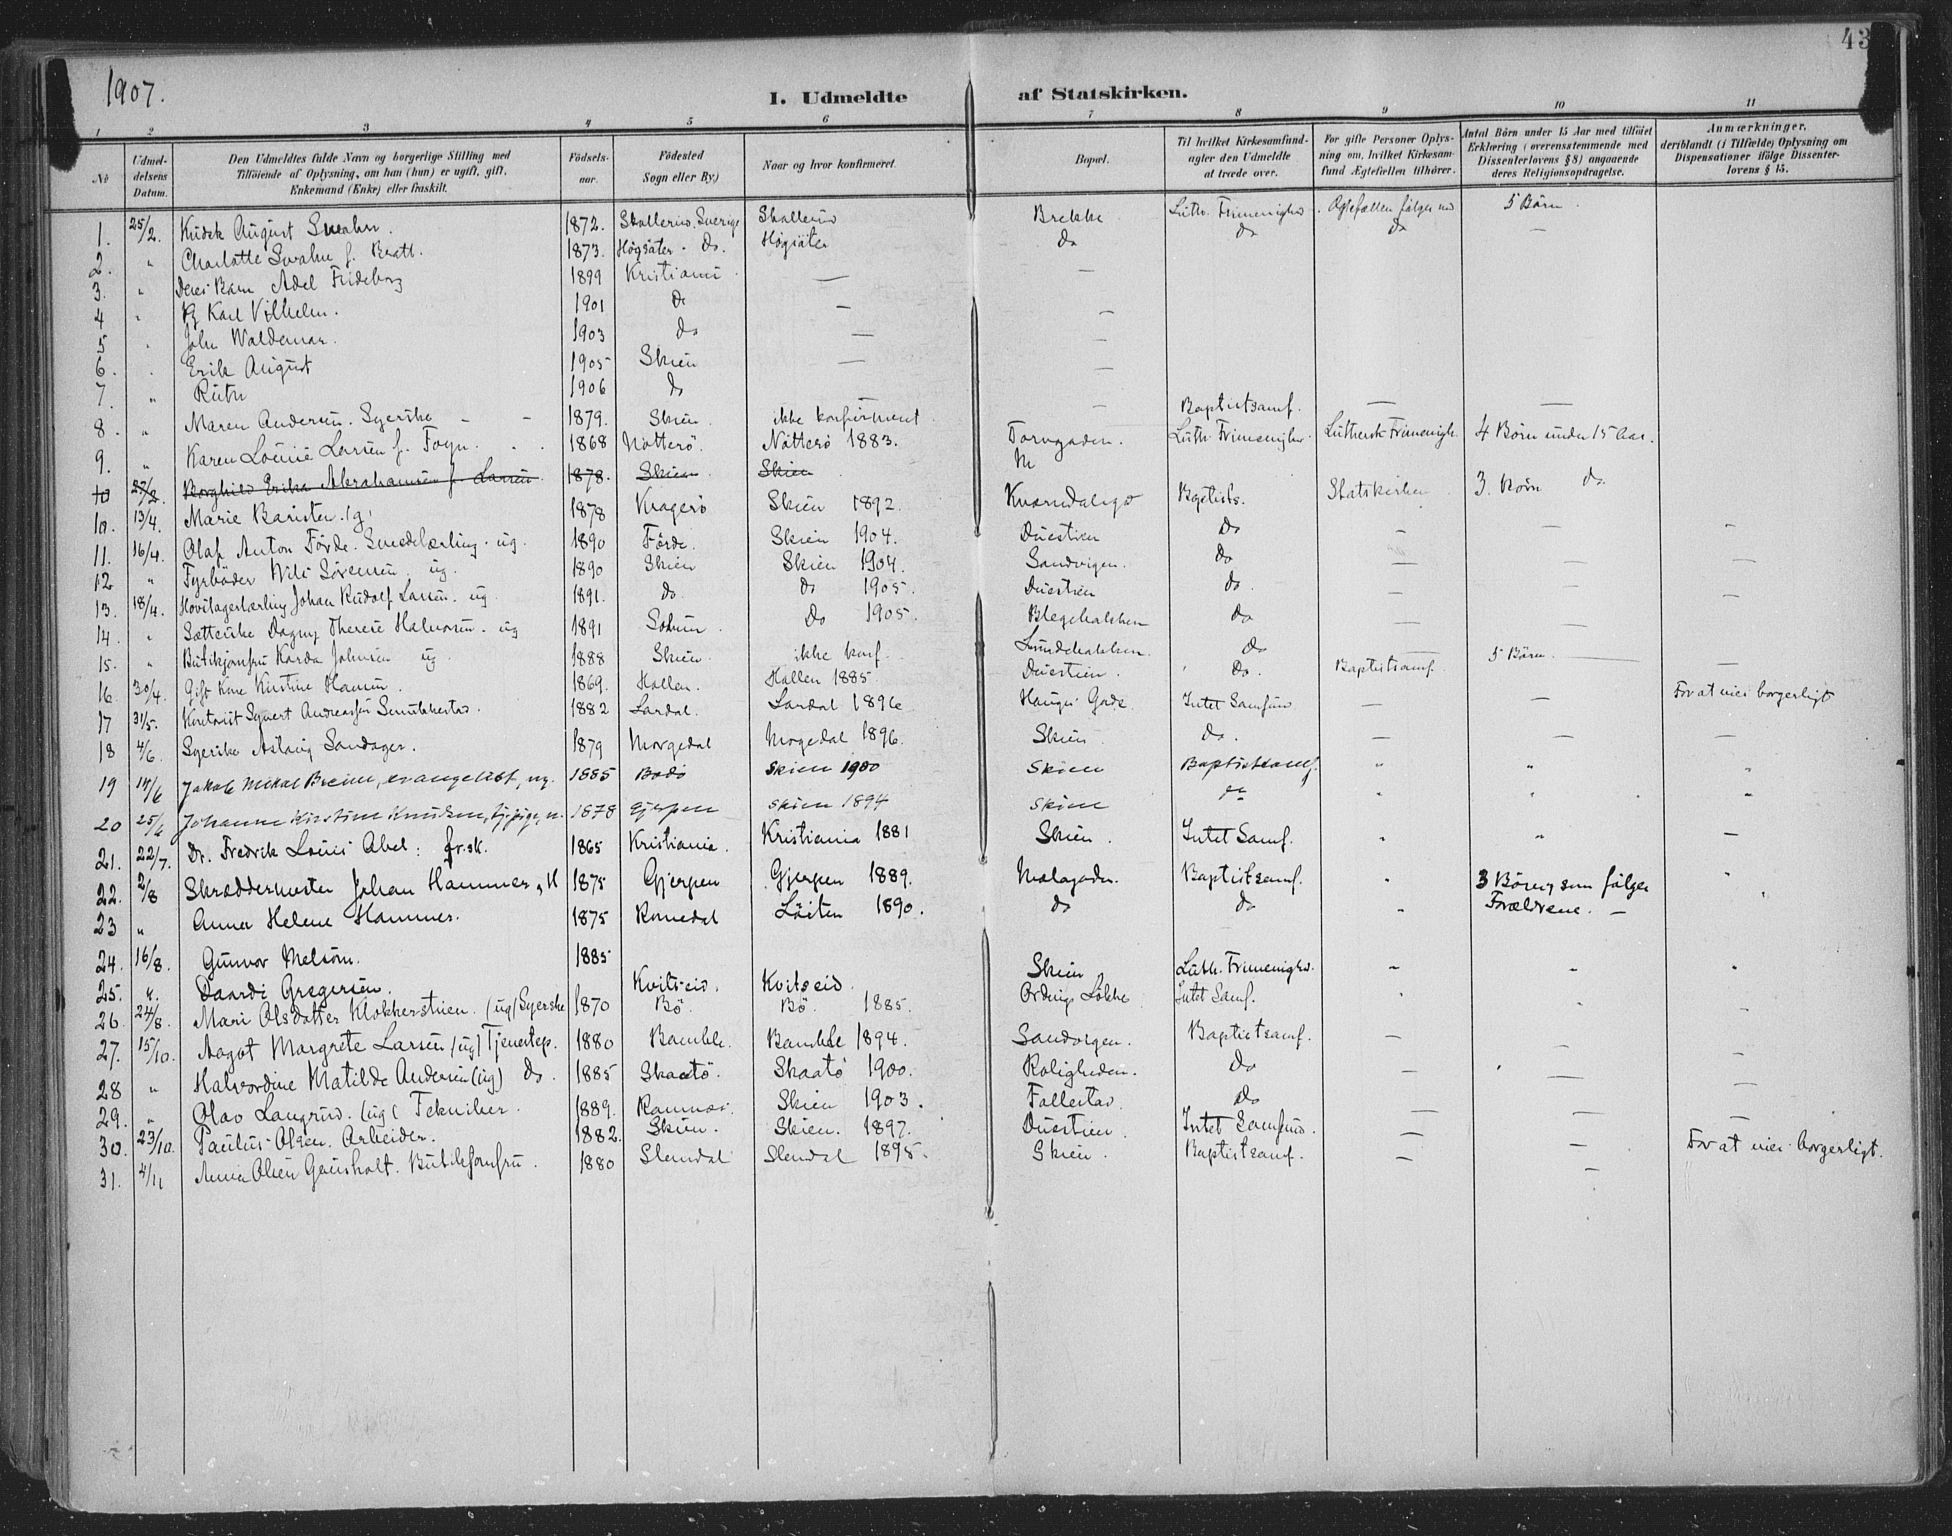 43
1907.
I. Udmeldte af Statskirken.
1 2 3 4 5 6 7 8 9 10 11
No
Udmel-
delsens
Datum.
Den Udmeldtes fulde Navn og borgerlige Stilling med
Tilføiende af Oplysning, om han (hun) er ugift, gift,
Enkemand (Enke) eller fraskilt.
Fødsels-
aar.
Fødested
Sogn eller By.)
Naar og hvor konfirmeret.
Bopæl.
Til hvilket Kirkesamfund-
agter den Udmeldte
at træde over.
For gifte Personer Oplys-
ning om, hvilket Kirkesam-
fund Ægtefællen tilhører.
Antal Børn under 15 Aar med tilføiet
Erklæring (overensstemmende med
Dissenterlovens § 8) angaaende
deres Religionsopdragelse.
Anmærkninger,
deriblandt (i Tilfælde) Oplysning om
Dispensationer ifølge Dissenter-
lovens § 15.
1. 25/2. August Swahn. 1872. Skallerud, Sverige Skallerud Brekke Luth. Frimenighed Ægtefællen følger med 5 Børn.
2. " Charlotte Swahn f. Bratt. 1873. Högsäter. do. Högsäter do do do —
3. " Deres Barn Adel Frideborg 1899 Kristiania — —
4 " Karl Vilhelm. 1901 do — —
5 " John Waldemar. 1903 do — —
6. " Erik August 1905 Skien — —
7. " Ruth 1906 do
8. " Maren Andersen. Syerske 1879. Skien. ikke konfirmeret — Baptistsamf. — —
9. " Karen Louise Larsen f. Foyn. 1868 Nötterö. Nötterö 1883. Torvgaden. Luth. Frimenighed. Luthersk Frimenigh. 4 Børn under 15 Aar.
10 27/2. Borghild Erika Abrahamsen f. Larsen 1878. Skien. Skien
10. 13/4. Marie 1878 Kragerö Skien 1892. Baptists. Statskirken 3. Børn do.
11. 16/4. Olaf Anton Förde. Smedelærling. ug. 1890 Förde. Skien 1904. Duestien do — — —
12 " Fyrböder Nils Sörensen. ug. 1890 Skien Skien 1904. Sandvigen. do — — —
13. 18/4. Johan Rudolf Larsen. ug. 1891. do. do 1905. Duestien do. — — —
14. " Sætterske Dagny Therese Halvorsen. ug 1891 Solum. do 1905. Blegebakken do — —
15. " Butikjomfru Karda Johnsen ug 1888 Skien. ikke konf. Lundebakken. do —
16. 30/4. Gift Kone Kirstine Hansen. 1869. Hollen. Hollen 1885 Duestien. do. Baptistsamf. 5 Børn. — —
17 31/5. Kontorist Syvert Andreassen 1882 Lardal. Lardal 1896 Hauges Gade Intet Samfund — — For at vies borgerligt
18 4/6. Syerske Aslaug Sandager. 1879 Morgedal Mogedal 1896. Skien do. — — —
19 14/6 Jakob Mikal Breien, evangelist, ug. 1885 Bodö Skien 1900 Skien Baptistsamf. " " "
20 25/6 Johanne Kirstine Knudsen, 1878 Gjerpen Skien 1894 Skien do " " "
21. 22/7. Dr. Fredrik Louis Abel: frsk. 1865 Kristiania. Kristiania 1881 Skien. Intet Samf. " " —
22. 2/8 Skræddermester Johan Hammer, 1875 Gjerpen Gjerpen 1889. Baptistsamf. " 3 Børn, som følger "
23 " Anna Helene Hammer. 1875 Romedal Löiten 1890. do do " Forældrene. — "
24. 16/8. Gunvor Melsom. 1885 Skien Luth. Frimenighed. " " "
25. " Daardi Gregersen. Kviteseid. Kviteseid. Intet Samf. " " "
26. 24/8. Mari Olsdatter Klokkerstuen. (ug) Syerske 1870 Bö. Bö. 1885.
27. 15/10. Aagot Margrete Larsen (ug) Tjenestep. 1880 Bamble. Bamble 1894. Sandvigen. Baptistsamf. — — —
28 " Halvordine Matilde Andersen (ug) do. 1885 Skaatö. Skaatö 1900. Roligheden. do — — —
29. " Olav Langrud. (ug) Tekniker. 1889. Ramnes. Skien 1903. Follestad. do — — —
30. 23/10. Paulus Olsen. Arbeider. 1882. Skien. Skien. 1897. Duestien. Intet Samfund. — — For at vies borgerligt.
31. 2/11 Anna Olsen Gausholt. Butikjomfru. 1880 Slemdal Slemdal 1895. Skien. Baptistsamf. — —